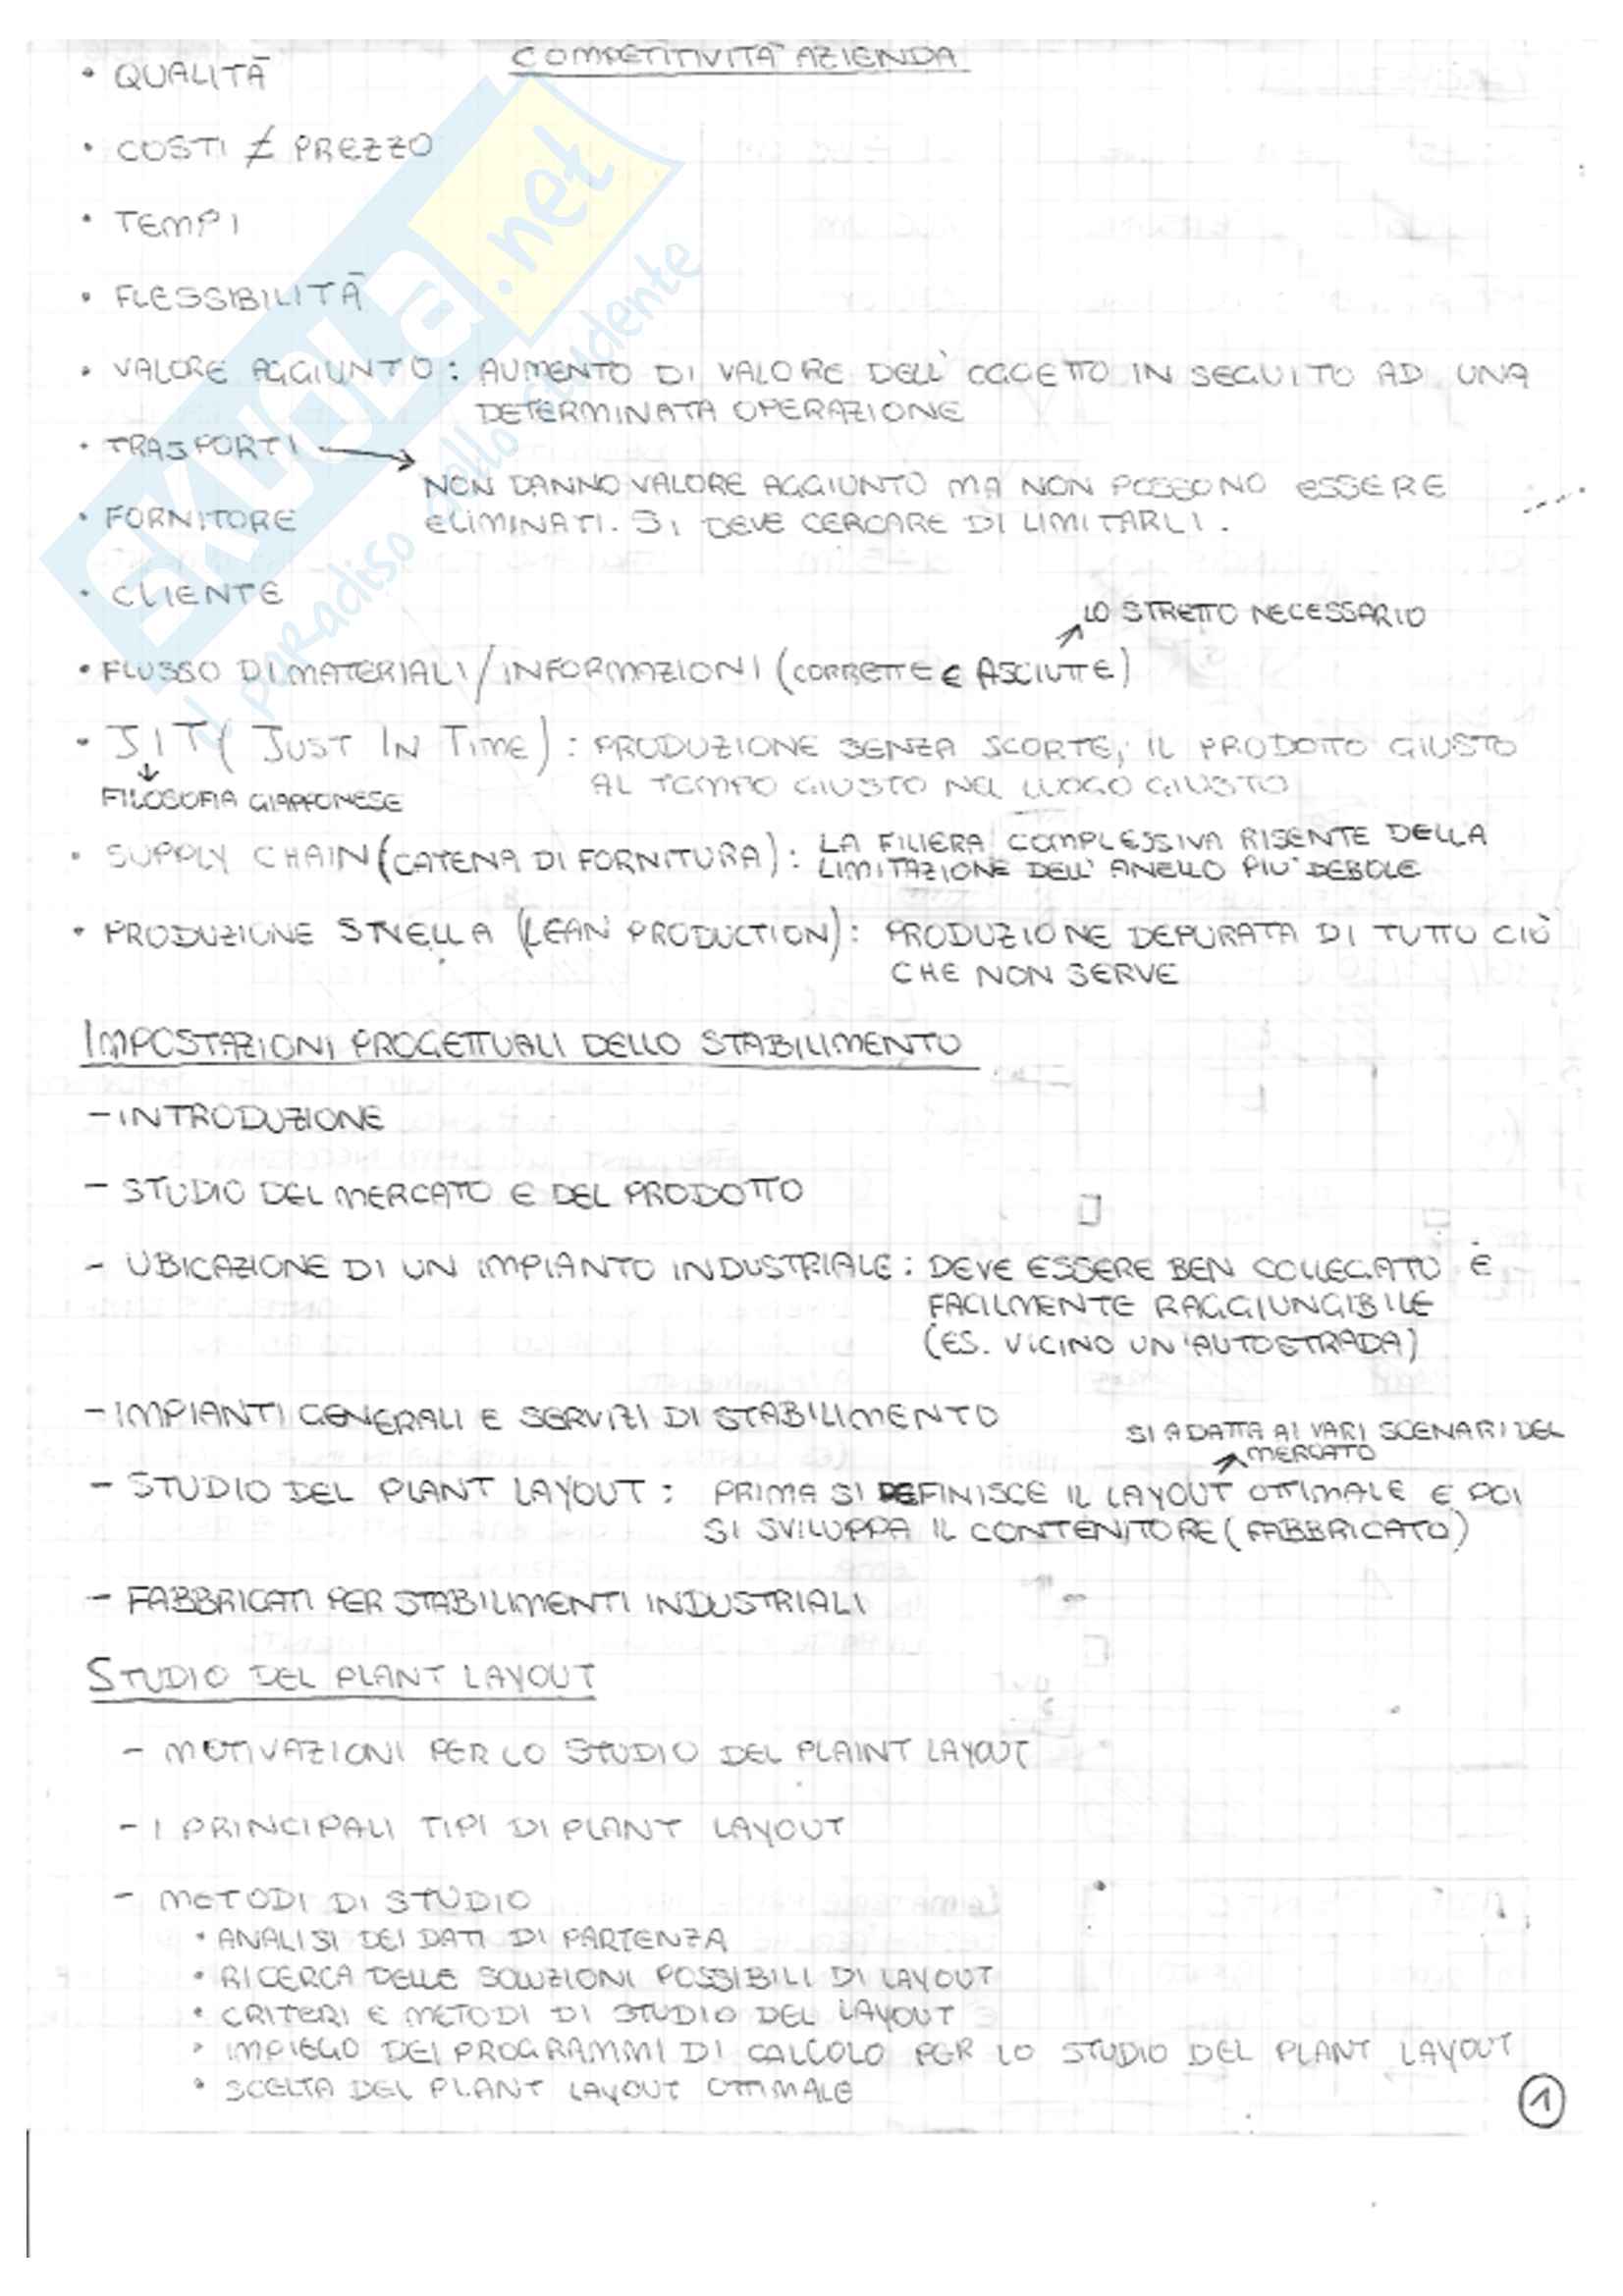 COMPETITIVITÀ AZIENDA
• QUALITÀ
• COSTI ≠ PREZZO
• TEMPI
• FLESSIBILITÀ
• VALORE AGGIUNTO: AUMENTO DI VALORE DELL'OGGETTO IN SEGUITO AD UNA
DETERMINATA OPERAZIONE
• TRASPORTI →
NON DANNO VALORE AGGIUNTO MA NON POSSONO ESSERE
• FORNITORE ELIMINATI. SI DEVE CERCARE DI LIMITARLI.
• CLIENTE
LO STRETTO NECESSARIO
• FLUSSO DI MATERIALI/INFORMAZIONI (CORRETTE E ASCIUTTE)
• JIT (JUST IN TIME): PRODUZIONE SENZA SCORTE, IL PRODOTTO GIUSTO
AL TEMPO GIUSTO NEL LUOGO GIUSTO
FILOSOFIA GIAPPONESE
• SUPPLY CHAIN (CATENA DI FORNITURA): LA FILIERA COMPLESSIVA RISENTE DELLA
LIMITAZIONE DELL'ANELLO PIU' DEBOLE
• PRODUZIONE SNELLA (LEAN PRODUCTION): PRODUZIONE DEPURATA DI TUTTO CIÒ
CHE NON SERVE
IMPOSTAZIONI PROGETTUALI DELLO STABILIMENTO
- INTRODUZIONE
- STUDIO DEL MERCATO E DEL PRODOTTO
- UBICAZIONE DI UN IMPIANTO INDUSTRIALE: DEVE ESSERE BEN COLLEGATO E
FACILMENTE RAGGIUNGIBILE
(ES. VICINO UN'AUTOSTRADA)
- IMPIANTI GENERALI E SERVIZI DI STABILIMENTO
SI ADATTA AI VARI SCENARI DEL
MERCATO
- STUDIO DEL PLANT LAYOUT: PRIMA SI DEFINISCE IL LAYOUT OTTIMALE E POI
SI SVILUPPA IL CONTENITORE (FABBRICATO)
- FABBRICATI PER STABILIMENTI INDUSTRIALI
STUDIO DEL PLANT LAYOUT
- MOTIVAZIONI PER LO STUDIO DEL PLAINT LAYOUT
- I PRINCIPALI TIPI DI PLANT LAYOUT
- METODI DI STUDIO
• ANALISI DEI DATI DI PARTENZA
• RICERCA DELLE SOLUZIONI POSSIBILI DI LAYOUT
• CRITERI E METODI DI STUDIO DEL LAYOUT
• IMPIEGO DEI PROGRAMMI DI CALCOLO PER LO STUDIO DEL PLANT LAYOUT
• SCELTA DEL PLANT LAYOUT OTTIMALE
1
SKUOLA.net
il paradiso dello studente